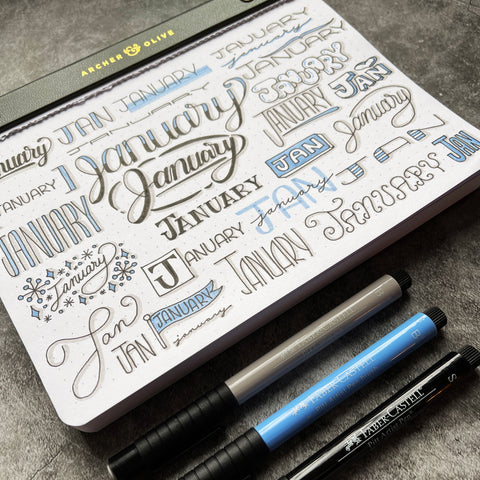 ARCHER OLIVE
JANUARY
january
JAN JANUARY
JANUARY
JANUARY
January
January
JANUARY
JANUARY
JAN
January
January
JANUARY
JAN
JAN
JANUARY
JANUARY
JANUARY
JAN
january
JANUARY
January
JANUARY
JANUARY
Jan
JAN
JANUARY
january
FABER-CASTELL
Pitt Artist Pen
B
FABER-CASTELL
Pitt Artist Pen
S